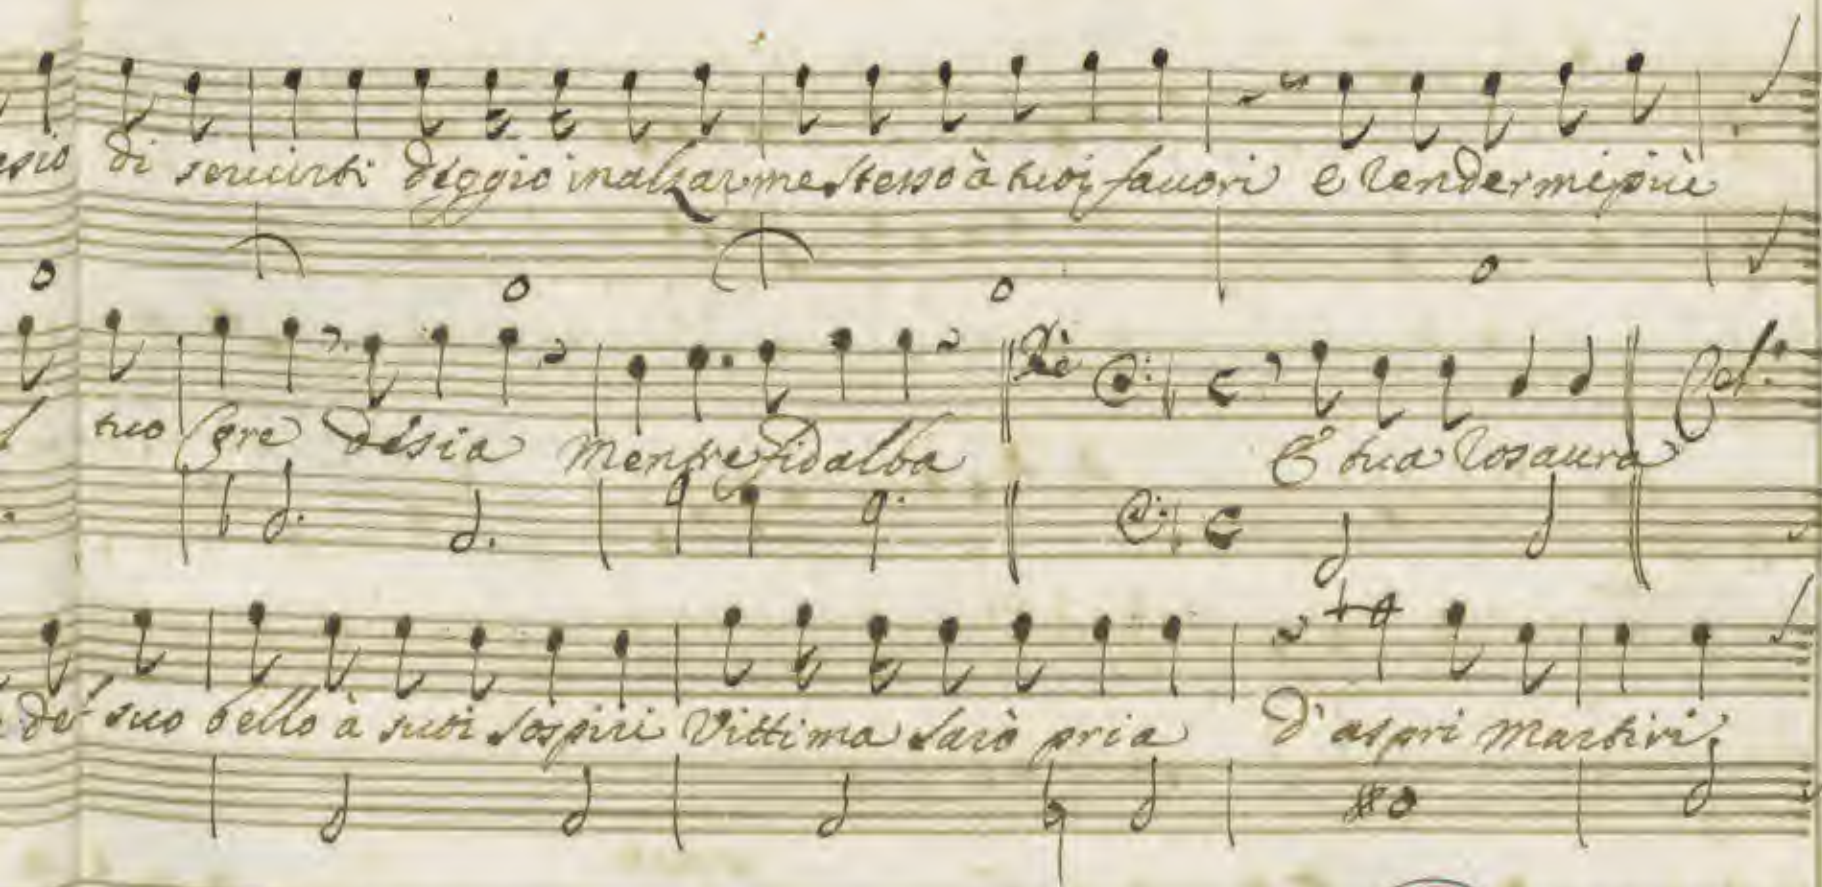 di seruirti deggio inalzar me stesso à tuoi fauori e rendermi più
Rè Cel.
tuo desia mentre fidalba E tua Rosaura
de suo bello à suoi sospiri Vittima sarò pria d'aspri martiri